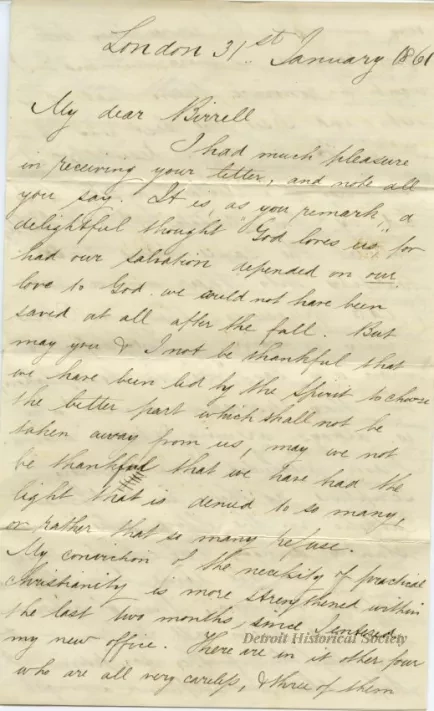 London 31st January 1861
My dear Birrell
I had much pleasure
in receiving your letter, and note all
you say. It is, as you remark "a
delightful thought "God loves us", for
had our salvation depended on our
love to God. we could not have been
saved at all after the fall. But
may you & I not be thankful that
we have been led by the Spirit to choose
the better part which shall not be
taken away from us, may we not
be thankful that we have had the
light that is denied to so many,
or rather that so many refuse.
My conviction of the necessity of practical
Christianity is more strengthened within
the last two months, since I entered
my new office. There are in it other four
who are all very careless, & three of them
Detroit Historical Society